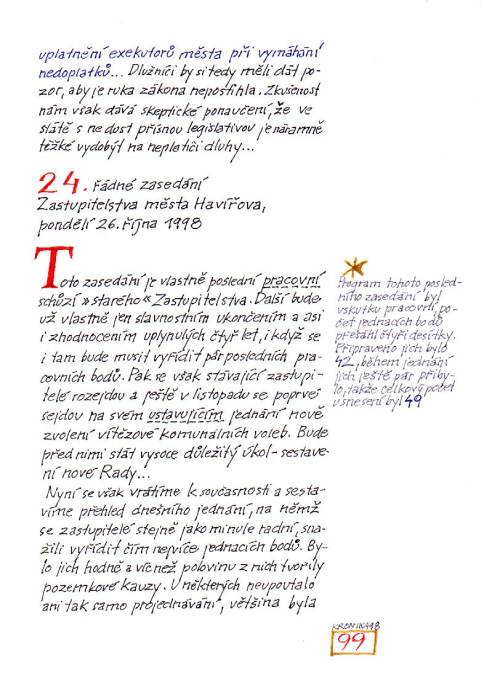 uplatnění exekutorů města při vymáhání
nedoplatků... Dlužníci by si tedy měli dát po-
zor, aby je ruka zákona nepostihla. Zkušenost
nám však dává skeptické ponaučení, že ve
státě s ne dost přísnou legislativou je náramně
těžké vydobýt na neplatiči dluhy...
24. řádné zasedání
Zastupitelstva města Havířova,
pondělí 26. října 1998
Toto zasedání je vlastně poslední pracovní
schůzí »starého« Zastupitelstva. Další bude
už vlastně jen slavnostním ukončením a asi
i zhodnocením uplynulých čtyř let, i když se
i tam bude muset vyřídit pár posledních pra-
covních bodů. Pak se však stávající zastupi-
telé rozejdou a ještě v listopadu se poprvé
sejdou na svém ustavujícím jednání nově
zvolení vítězové komunálních voleb. Bude
před nimi stát vysoce důležitý úkol - sestave-
ní nové Rady...
Nyní se však vrátíme k současnosti a sesta-
víme přehled dnešního jednání, na němž
se zastupitelé stejně jako minule radní, sna-
žili vyřídit čím nejvíce jednacích bodů. By-
lo jich hodně a víc než polovinu z nich tvořily
pozemkové kauzy. U některých neupoutalo
ani tak samo projednávání, většina byla
Program tohoto posled-
ního zasedání byl
vskutku pracovní, po-
čet jednacích bodů
přesáhl čtyři desítky.
Připraveno jich bylo
42, během jednání
jich ještě pár přiby-
lo, takže celkový počet
usnesení byl 49
KRONIKA98
99